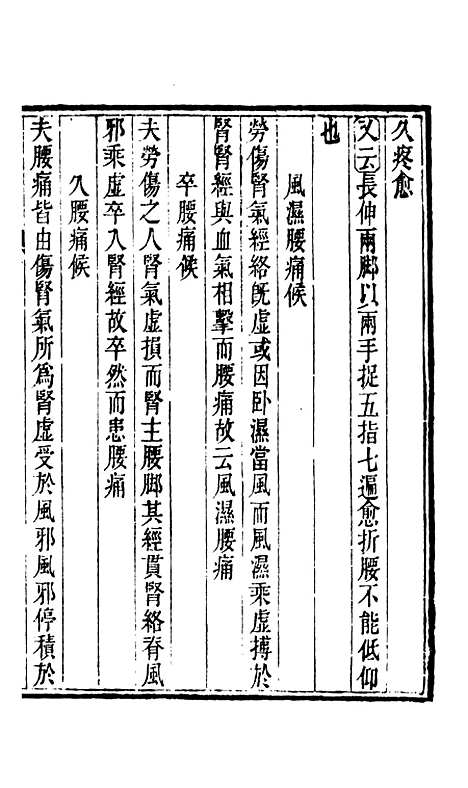 久疼愈
又云長伸兩脚以兩手捉五指七遍愈折腰不能低仰
也
風濕腰痛候
勞傷腎氣經絡旣虛或因卧濕當風而風濕乘虛摶於
腎腎經與血氣相擊而腰痛故云風濕腰痛
卒腰痛候
夫勞傷之人腎氣虛損而腎主腰脚其經貫腎絡脊風
邪乘虛卒入腎經故卒然而患腰痛
久腰痛候
夫腰痛皆由傷腎氣所爲腎虛受於風邪風邪停積於